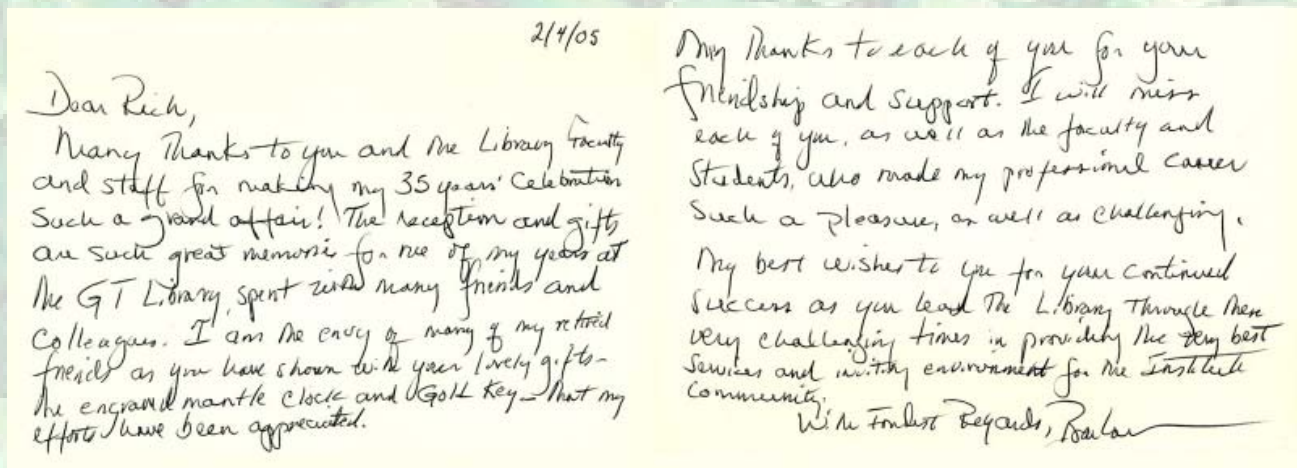 2/4/05
Dear Rich,
Many Thanks to you and the Library Faculty
and staff for making my 35 years' Celebration
Such a grand affair! The reception and gifts
are such great memories for me of my years at
the GT Library, spent with many friends and
Colleagues. I am the envy of many of my retired
friends as you have shown with your lovely gifts-
the engraved mantle clock and Gold Key - that my
efforts have been appreciated.
My Thanks to each of you for your
friendship and support. I will miss
each of you, as well as the faculty and
Students, who made my professional career
such a pleasure, as well as challenging.
My best wishes to you for your continued
success as you lead The Library Through these
very challenging times in providing the very best
Services and inviting environment for the Institute
Community.
With Fondest Regards,